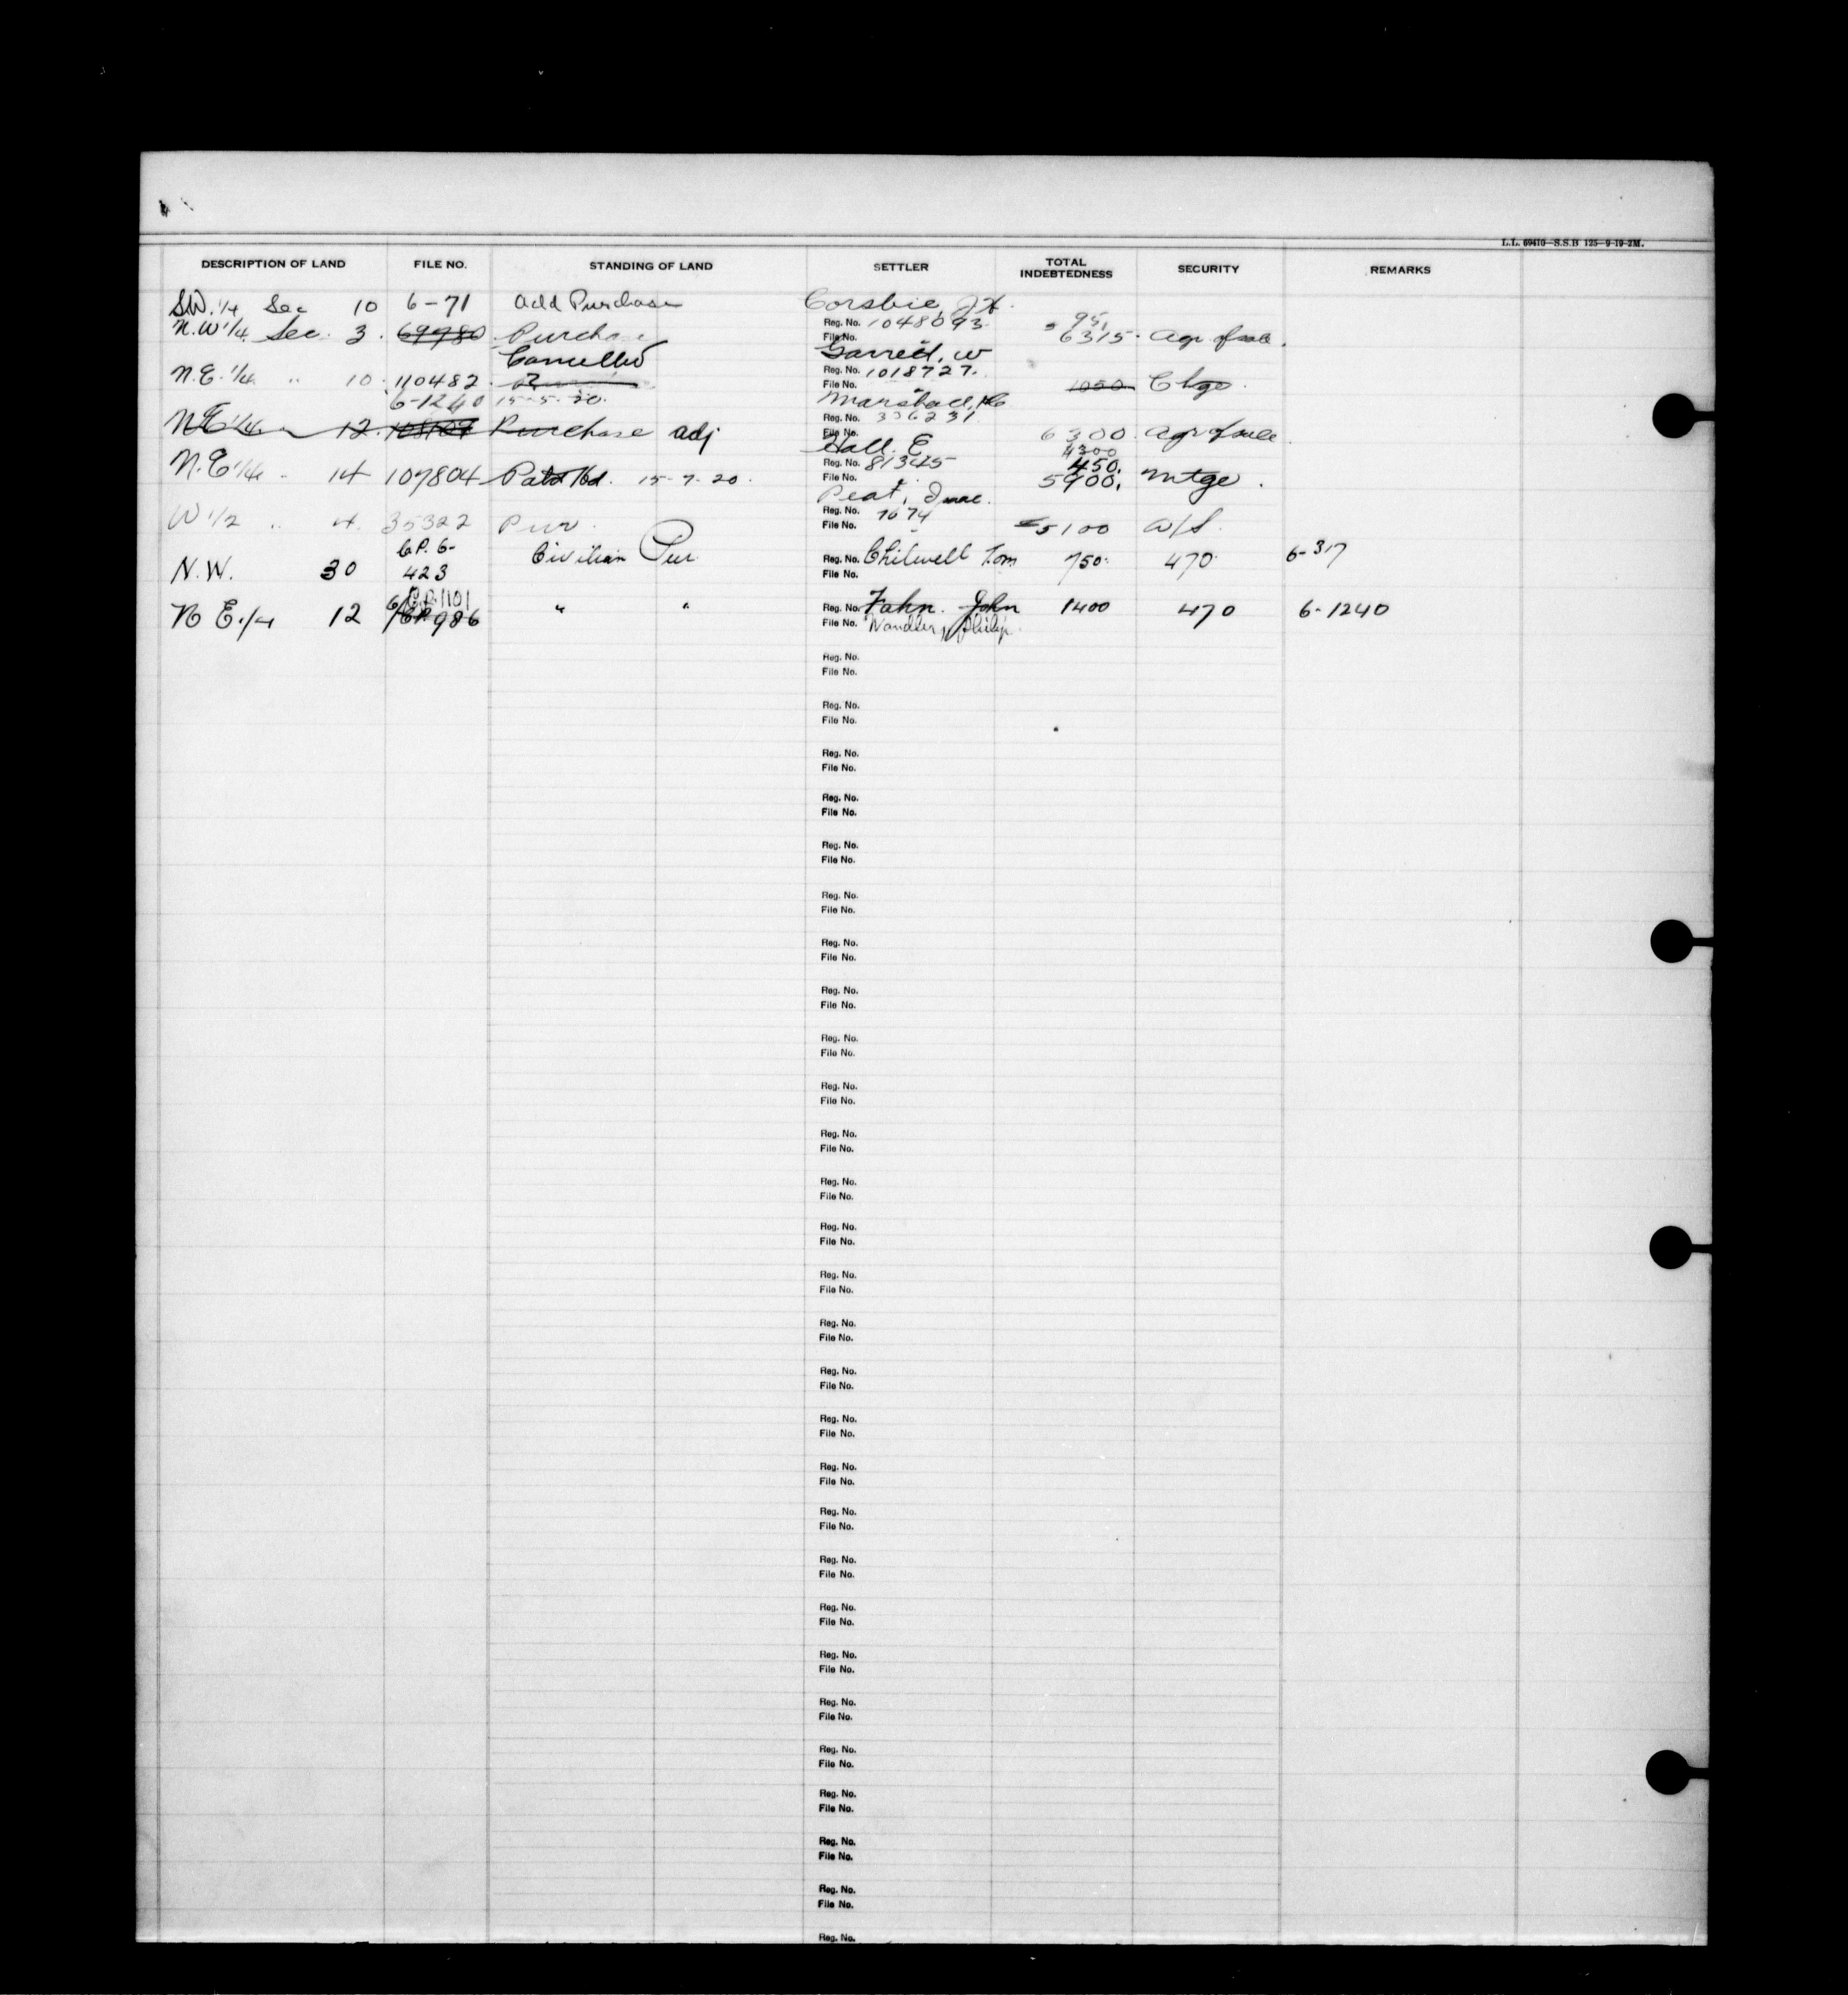 L.L. 69410—S.S.B 125—9-19-2M.
DESCRIPTION OF LAND FILE NO. STANDING OF LAND SETTLER TOTAL INDEBTEDNESS SECURITY REMARKS
SW. 1/4 Sec 10 6-71 Add Purchase Corsbie, J H.
N.W 1/4 Sec. 3. 69780 Purchase Reg. No. 1048093. 95, 6315. Agr of sale.
File No.
Cancelled Garrett, W
N.E. 1/4 " 10. 110482. Reg. No. 1018727. 1050 Chge.
File No.
6-1240 15-5-20. Marshall, HC
Reg. No. 336231
NE 1/4 12. Purchase adj File No. 6300. Agr of sale.
Hall. E 4300
N.E 1/4 " 14 107804 Patd Hd. 15-7-20. Reg. No. 81345 450.
File No. 5900. Mtge.
Peat, Isaac.
W 1/2 " 4. 35322 Pur. Reg. No. 7674 5100 A/S.
File No.
C.P. 6- Civilian Pur.
N.W. 30 423 Reg. No. Chilwell Tom 750. 470. 6-317
File No.
C.P. 1101
N E. 1/4 12 6/CP. 986 " " Reg. No. Fahn. John 1400 470 6-1240
File No. Wandler, Philip.
Reg. No.
File No.
Reg. No.
File No.
Reg. No.
File No.
Reg. No.
File No.
Reg. No.
File No.
Reg. No.
File No.
Reg. No.
File No.
Reg. No.
File No.
Reg. No.
File No.
Reg. No.
File No.
Reg. No.
File No.
Reg. No.
File No.
Reg. No.
File No.
Reg. No.
File No.
Reg. No.
File No.
Reg. No.
File No.
Reg. No.
File No.
Reg. No.
File No.
Reg. No.
File No.
Reg. No.
File No.
Reg. No.
File No.
Reg. No.
File No.
Reg. No.
File No.
Reg. No.
File No.
Reg. No.
File No.
Reg. No.
File No.
Reg. No.
File No.
Reg. No.